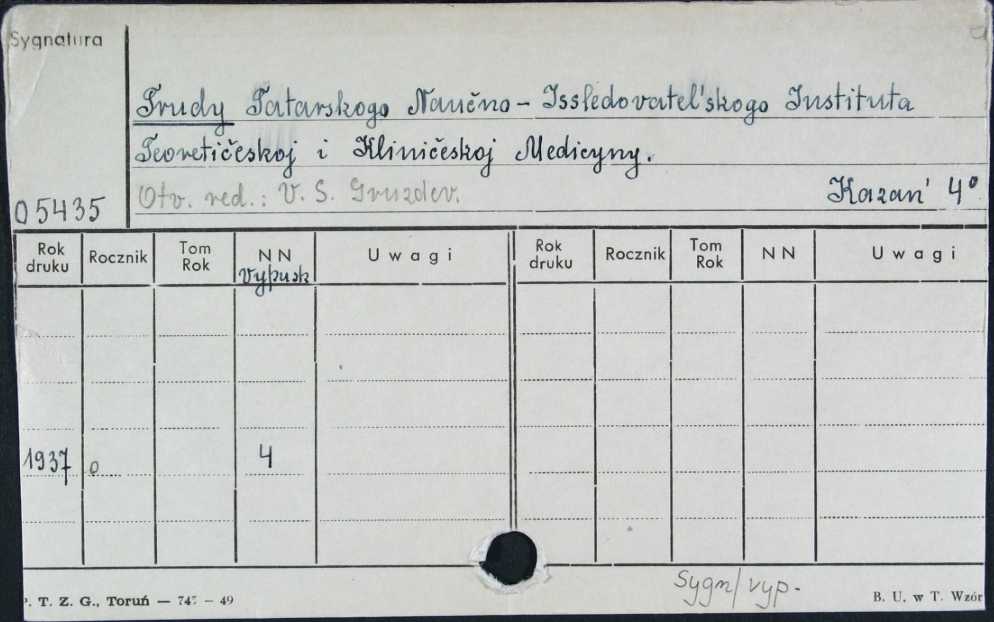 Sygnatura
Trudy Tatarskogo Naučno - Issledovatel'skogo Instituta
Teoretičeskoj i Kliničeskoj Medicyny.
Otv. red.: V. S. Gruzdev.
Kazan' 4°
05435
Rok druku Rocznik Tom Rok NN Uwagi Rok druku Rocznik Tom Rok NN Uwagi
Vypusk
1937 o 4
Sygn/vyp.
P. T. Z. G., Toruń — 747 - 49
B. U. w T. Wzór